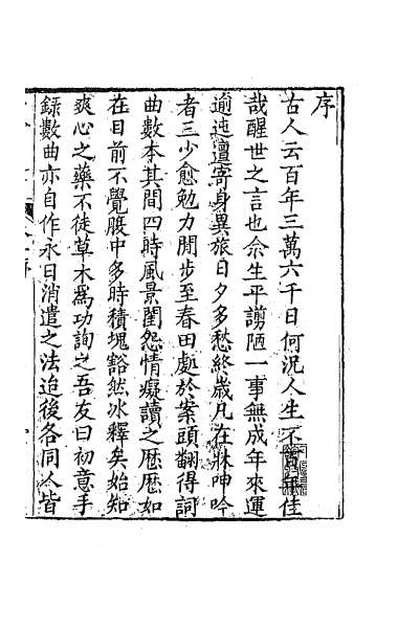 序
古人云百年三萬六千日何況人生不百年佳
哉醒世之言也余生平謭陋一事無成年來運
逾迍邅寄身異旅日夕多愁終歲凡在牀呻吟
者三少愈勉力閒步至春田處於案頭翻得詞
曲數本其間四時風景閨怨情癡讀之歷歷如
在目前不覺腹中多時積塊豁然冰釋矣始知
爽心之藥不徒草木爲功詢之吾友曰初意手
錄數曲亦自作永日消遣之法迨後各同人皆